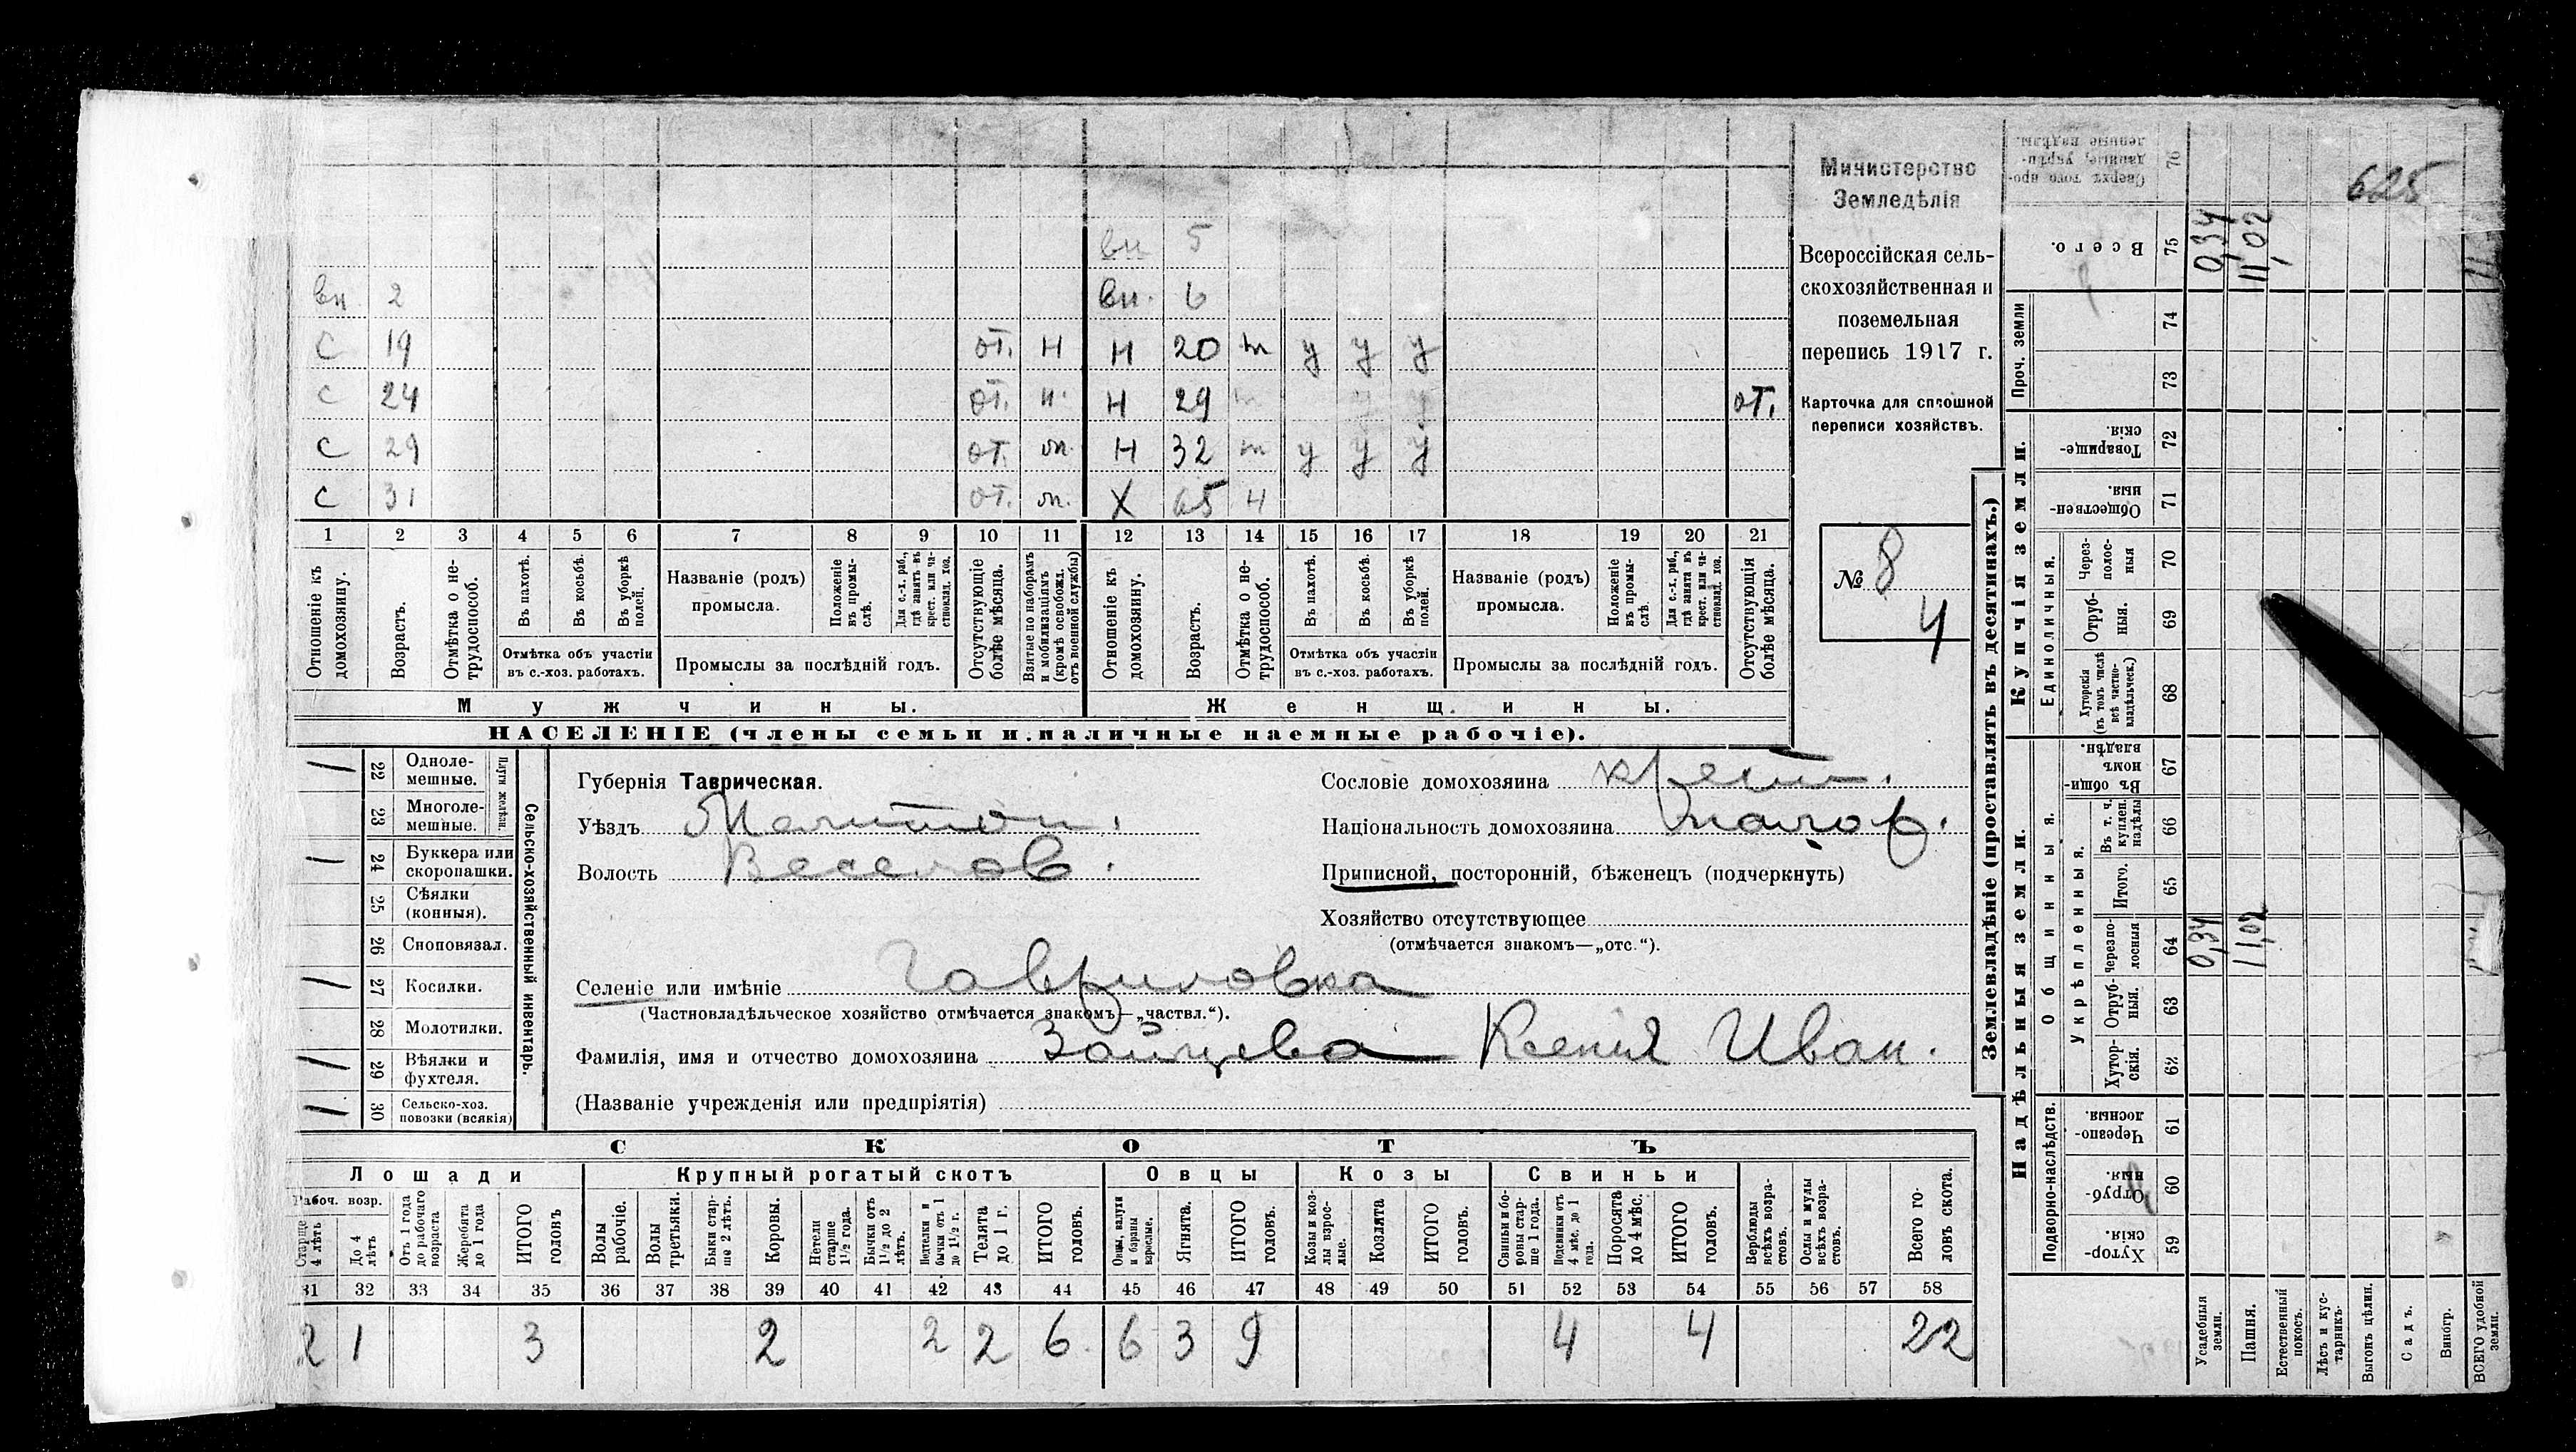 625
Министерство
Земледѣлія
Всероссійская сель-
скохозяйственная и
поземельная
перепись 1917 г.
Карточка для сплошной
переписи хозяйствъ.
№ 8
4
вн 5
вн. 2 вн. 6
с 19 от. н н 20 т у у у
с 24 от. н. н 29 т у у от.
с 29 от. т. н 32 т у у у
с 31 от. т. Х 65 н
1 2 3 4 5 6 7 8 9 10 11 12 13 14 15 16 17 18 19 20 21
Отношеніе къ домохозяину.
Возрастъ.
Отмѣтка о не-трудоспособ.
Въ пахотѣ.
Въ косьбѣ.
Въ уборкѣ полей.
Отмѣтка объ участіи
въ с.-хоз. работахъ.
Названіе (родъ)
промысла.
Положеніе въ промы-слѣ.
Для с.-х. раб., гдѣ занятъ въ крест. или ча-стновлад. хоз.
Промыслы за послѣдній годъ.
Отсутствующіе болѣе мѣсяца.
Взятые по наборамъ и мобилизаціямъ (кромѣ освобожд. отъ военной службы)
Отношеніе къ домохозяину.
Возрастъ.
Отмѣтка о не-трудоспособ.
Въ пахотѣ.
Въ косьбѣ.
Въ уборкѣ полей.
Отмѣтка объ участіи
въ с.-хоз. работахъ.
Названіе (родъ)
промысла.
Положеніе въ промы-слѣ.
Для с.-х. раб., гдѣ занята въ крест. или ча-стновлад. хоз.
Промыслы за послѣдній годъ.
Отсутствующія болѣе мѣсяца.
Мужчины. Женщины.
НАСЕЛЕНІЕ (члены семьи и наличные наемные рабочіе).
Сельско-хозяйственный инвентарь.
Плуги желѣзн.
/ 22 Однолемешные.
23 Многолемешные.
/ 24 Буккера или скоропашки.
25 Сѣялки (конныя).
26 Сноповязал.
/ 27 Косилки.
28 Молотилки.
/ 29 Вѣялки и фухтеля.
/ 30 Сельско-хоз. повозки (всякія)
Губернія Таврическая.
Уѣздъ Мелитоп.
Волость Веселов.
Сословіе домохозяина крест.
Національность домохозяина малор.
Приписной, посторонній, бѣженецъ (подчеркнуть)
Хозяйство отсутствующее
(отмѣчается знакомъ—„отс.“).
Селеніе или имѣніе Гавриловка
(Частновладѣльческое хозяйство отмѣчается знакомъ—„частвл.“).
Фамилія, имя и отчество домохозяина Зайцева Ксенія Иван.
(Названіе учрежденія или предпріятія)
СКОТЪ
Лошади Крупный рогатый скотъ Овцы Козы Свиньи
Рабоч. возр.
Старше 4 лѣтъ
До 4 лѣтъ
Отъ 1 года до рабочаго возраста
Жеребята до 1 года
ИТОГО головъ
Волы рабочіе.
Волы третьяки.
Быки стар-ше 2 лѣтъ.
Коровы.
Нетели старше 1½ года.
Бычки отъ 1½ до 2 лѣтъ.
Нетелки и бычки отъ 1 до 1½ г.
Телята до 1 г.
ИТОГО головъ.
Овцы, валухи и бараны взрослые.
Ягнята.
ИТОГО головъ.
Козы и коз-лы взрос-лые.
Козлята
ИТОГО головъ.
Свиньи и бо-ровы стар-ше 1 года.
Подсвинки отъ 4 мѣс. до 1 года.
Поросята до 4 мѣс.
ИТОГО головъ.
Верблюды всѣхъ возра-стовъ.
Ослы и мулы всѣхъ возра-стовъ.
Всего го-ловъ скота.
31 32 33 34 35 36 37 38 39 40 41 42 43 44 45 46 47 48 49 50 51 52 53 54 55 56 57 58
2 1 3 2 2 2 6 6 3 9 4 4 22
Землевладѣніе (проставлять въ десятинахъ.)
Надѣльныя земли. Купчія земли.
Проч. земли
Подворно-наслѣдств.
Общинныя.
Укрѣпленныя.
Единоличныя.
Хутор-скія. 59
Отруб-ныя. 60
Черезпо-лосныя. 61
Хутор-скія. 62
Отруб-ныя. 63
Черезпо-лосныя 64
Итого. 65
Въ т. ч. куплен. надѣлы 66
Въ общи-номъ владѣн. 67
Хуторскія (въ томъ числѣ всѣ частно-владѣльческ.) 68
Отруб-ныя. 69
Через-полос-ныя 70
Обществен-ныя. 71
Товарище-скія. 72
73
74
Всего. 75
Сверхъ того про-данные, укрѣп-ленные надѣлы. 76
Усадебныя земли. 0,34 0,34
Пашня. 11,02 11,02
Естественный покосъ.
Лѣсъ и кус-тарникъ.
Выгонъ цѣлин.
Садъ.
Виногр.
ВСЕГО удобной земли.